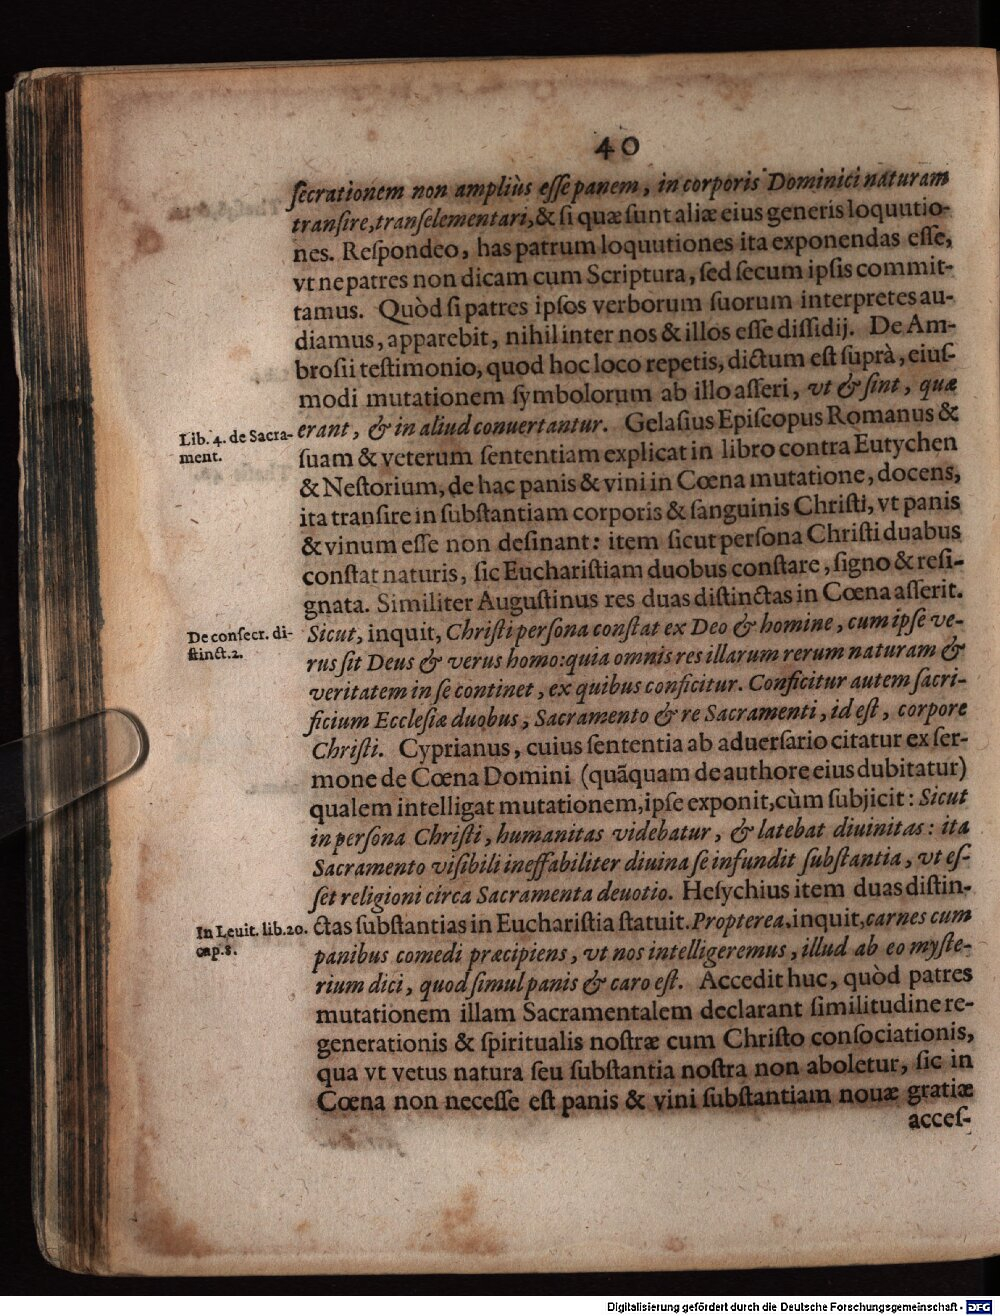 40
ſecrationem non ampliùs eſſe panem, in corporis Dominici naturam
tranſire, tranſelementari, & ſi quæ ſunt aliæ eius generis loquutio-
nes. Reſpondeo, has patrum loquutiones ita exponendas eſſe,
vt ne patres non dicam cum Scriptura, ſed ſecum ipſis commit-
tamus. Quòd ſi patres ipſos verborum ſuorum interpretes au-
diamus, apparebit, nihil inter nos & illos eſſe diſſidij. De Am-
broſii teſtimonio, quod hoc loco repetis, dictum eſt ſuprà, eiuſ-
modi mutationem ſymbolorum ab illo aſſeri, vt & ſint, quæ
Lib. 4. de Sacra-
ment.
erant, & in aliud conuertantur. Gelaſius Epiſcopus Romanus &
ſuam & veterum ſententiam explicat in libro contra Eutychen
& Neſtorium, de hac panis & vini in Cœna mutatione, docens,
ita tranſire in ſubſtantiam corporis & ſanguinis Chriſti, vt panis
& vinum eſſe non deſinant: item ſicut perſona Chriſti duabus
conſtat naturis, ſic Euchariſtiam duobus conſtare, ſigno & reſi-
gnata. Similiter Auguſtinus res duas diſtinctas in Cœna aſſerit.
De conſecr. di-
ſtinct. 2.
Sicut, inquit, Chriſti perſona conſtat ex Deo & homine, cum ipſe ve-
rus ſit Deus & verus homo: quia omnis res illarum rerum naturam &
veritatem in ſe continet, ex quibus conficitur. Conficitur autem ſacri-
ficium Eccleſiæ duobus, Sacramento & re Sacramenti, id eſt, corpore
Chriſti. Cyprianus, cuius ſententia ab aduerſario citatur ex ſer-
mone de Cœna Domini (quãquam de authore eius dubitatur)
qualem intelligat mutationem, ipſe exponit, cùm ſubjicit: Sicut
in perſona Chriſti, humanitas videbatur, & latebat diuinitas: ita
Sacramento viſibili ineffabiliter diuina ſe infundit ſubſtantia, vt eſ-
ſet religioni circa Sacramenta deuotio. Heſychius item duas diſtin-
In Leuit. lib. 20.
cap. 8.
ctas ſubſtantias in Euchariſtia ſtatuit. Propterea, inquit, carnes cum
panibus comedi præcipiens, vt nos intelligeremus, illud ab eo myſte-
rium dici, quod ſimul panis & caro eſt. Accedit huc, quòd patres
mutationem illam Sacramentalem declarant ſimilitudine re-
generationis & ſpiritualis noſtræ cum Chriſto conſociationis,
qua vt vetus natura ſeu ſubſtantia noſtra non aboletur, ſic in
Cœna non neceſſe eſt panis & vini ſubſtantiam nouæ gratiæ
acceſ-
Digitalisierung gefördert durch die Deutsche Forschungsgemeinschaft - DFG